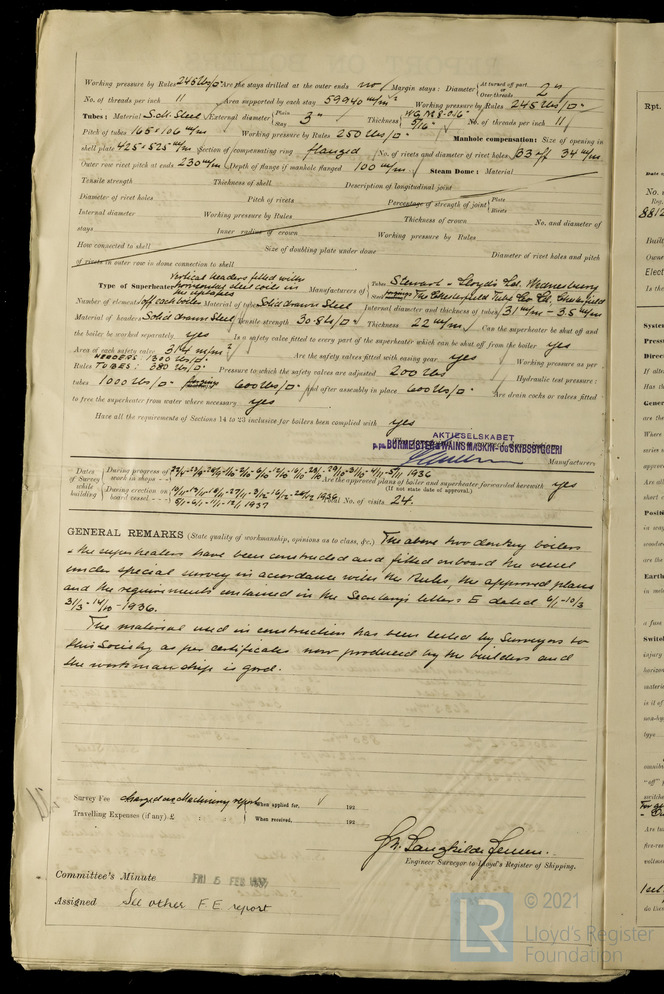 Working pressure by Rules 245 lbs/□" Are the stays drilled at the outer ends no Margin stays: Diameter At turned off part or Over threads 2"
No. of threads per inch 11 Area supported by each stay 59940 m/m² Working pressure by Rules 245 lbs/□"
Tubes: Material S.M. Steel External diameter Plain Stay 3" Thickness W.G. No. of threads per inch 11
Pitch of tubes 165 × 106 m/m Working pressure by Rules 250 lbs/□" Manhole compensation: Size of opening in
shell plate 425 × 525 m/m Section of compensating ring flanged No. of rivets and diameter of rivet holes 33 off 34 m/m
Outer row rivet pitch at ends 230 m/m Depth of flange if manhole flanged 100 m/m Steam Dome: Material
Tensile strength Thickness of shell Description of longitudinal joint
Diameter of rivet holes Pitch of rivets Percentage of strength of joint Plate Rivets
Internal diameter Working pressure by Rules Thickness of crown No. and diameter of
stays Inner radius of crown Working pressure by Rules
How connected to shell Size of doubling plate under dome Diameter of rivet holes and pitch
of rivets in outer row in dome connection to shell
Type of Superheater Vertical headers fitted with horizontal steel coils in the uptakes Manufacturers of Tubes Stewart & Lloyds Ltd. Wednesbury
Steel forgings The Chesterfield Tube Co. Ld, Chesterfield
Number of elements off each boiler Material of tubes Solid drawn Steel Internal diameter and thickness of tubes 31 m/m - 3.5 m/m
Material of headers Solid drawn Steel Tensile strength 30.8 lbs/□" Thickness 22 m/m Can the superheater be shut off and
the boiler be worked separately yes Is a safety valve fitted to every part of the superheater which can be shut off from the boiler yes
Area of each safety valve 314 m/m² Are the safety valves fitted with easing gear yes Working pressure as per
Rules HEADERS: 1300 lbs/□" TUBES: 380 lbs/□" Pressure to which the safety valves are adjusted 200 lbs Hydraulic test pressure:
tubes 1000 lbs/□" forgings 600 lbs/□" and after assembly in place 600 lbs/□" Are drain cocks or valves fitted
to free the superheater from water where necessary yes
Have all the requirements of Sections 14 to 23 inclusive for boilers been complied with yes
AKTIESELSKABET
p.pa. BURMEISTER & WAINS MASKIN- OG SKIBSBYGGERI
Manufacturer
Dates of Survey while building During progress of work in shops 1936 Are the approved plans of boiler and superheater forwarded herewith yes
(If not state date of approval.)
During erection on board vessel 1936 5/1-6/1-11/1-12/1 1937 Total No. of visits 24.
GENERAL REMARKS (State quality of workmanship, opinions as to class, &c.) The above two donkey boilers
& the superheaters have been constructed and fitted onboard the vessel
under special survey in accordance with the Rules, the approved plans
and the requirements contained in the Secretary's letters: E dated 6/1-10/3
31/3-14/10-1936.
The material used in construction has been tested by Surveyors to
this Society as per certificates now produced by the builders and
the workmanship is good.
Survey Fee charged on Machinery report When applied for, 192
Travelling Expenses (if any) £ : : When received, 192
Engineer Surveyor to Lloyd's Register of Shipping.
Committee's Minute FRI 5 FEB 1937
Assigned See other F.E report
© 2021
Lloyd's Register
Foundation
Rpt.